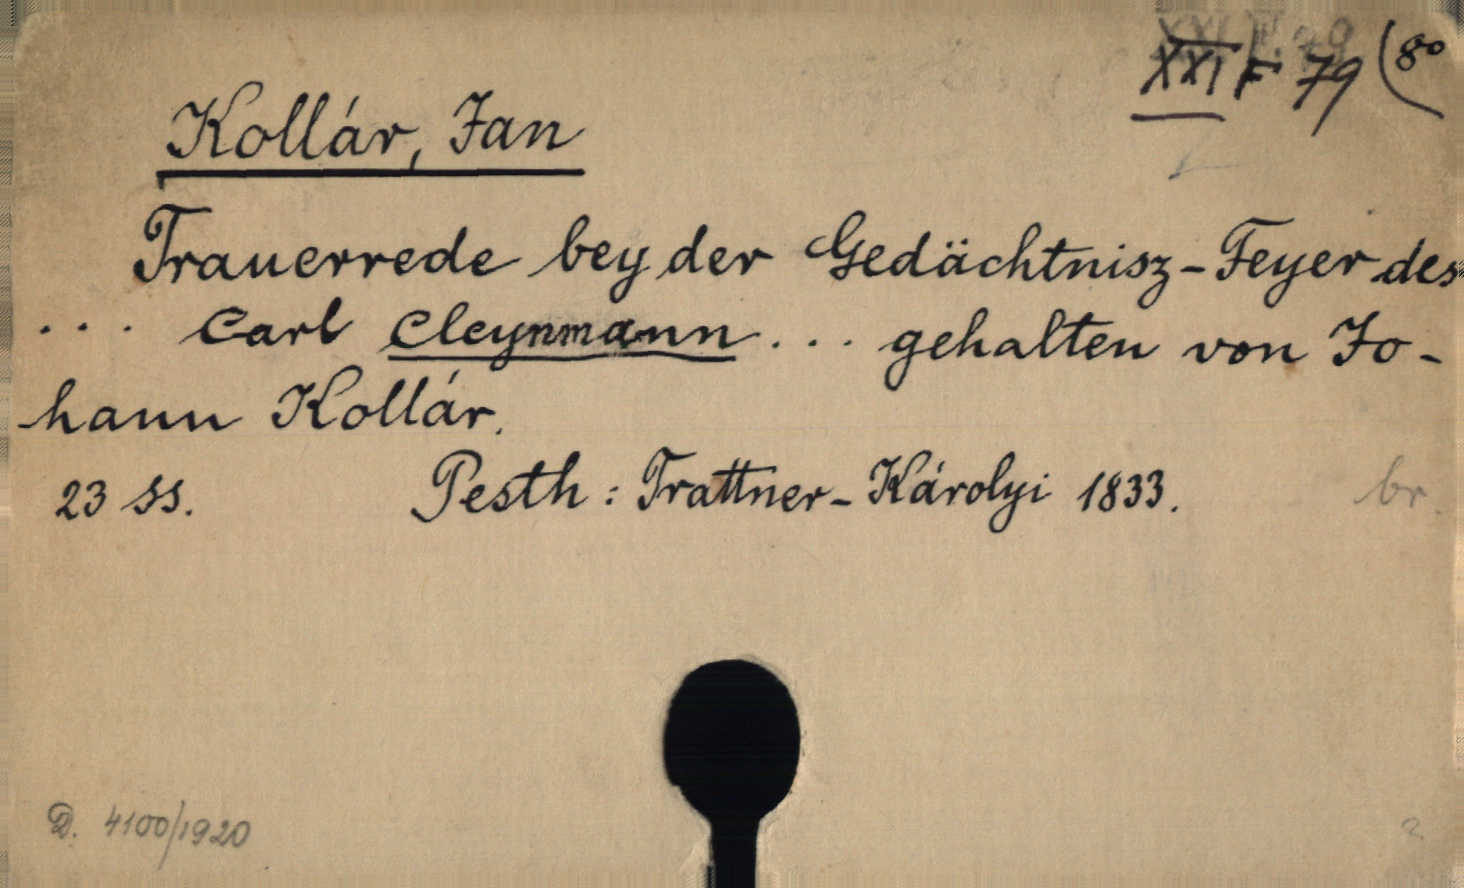 XXI F 79 (8°
Kollár, Jan
Trauerrede bey der Gedächtnisz-Feyer des
... Carl Cleynmann ... gehalten von Jo-
hann Kollár.
23 ss. Pesth: Trattner-Károlyi 1833. br.
D. 4100/1920
2.